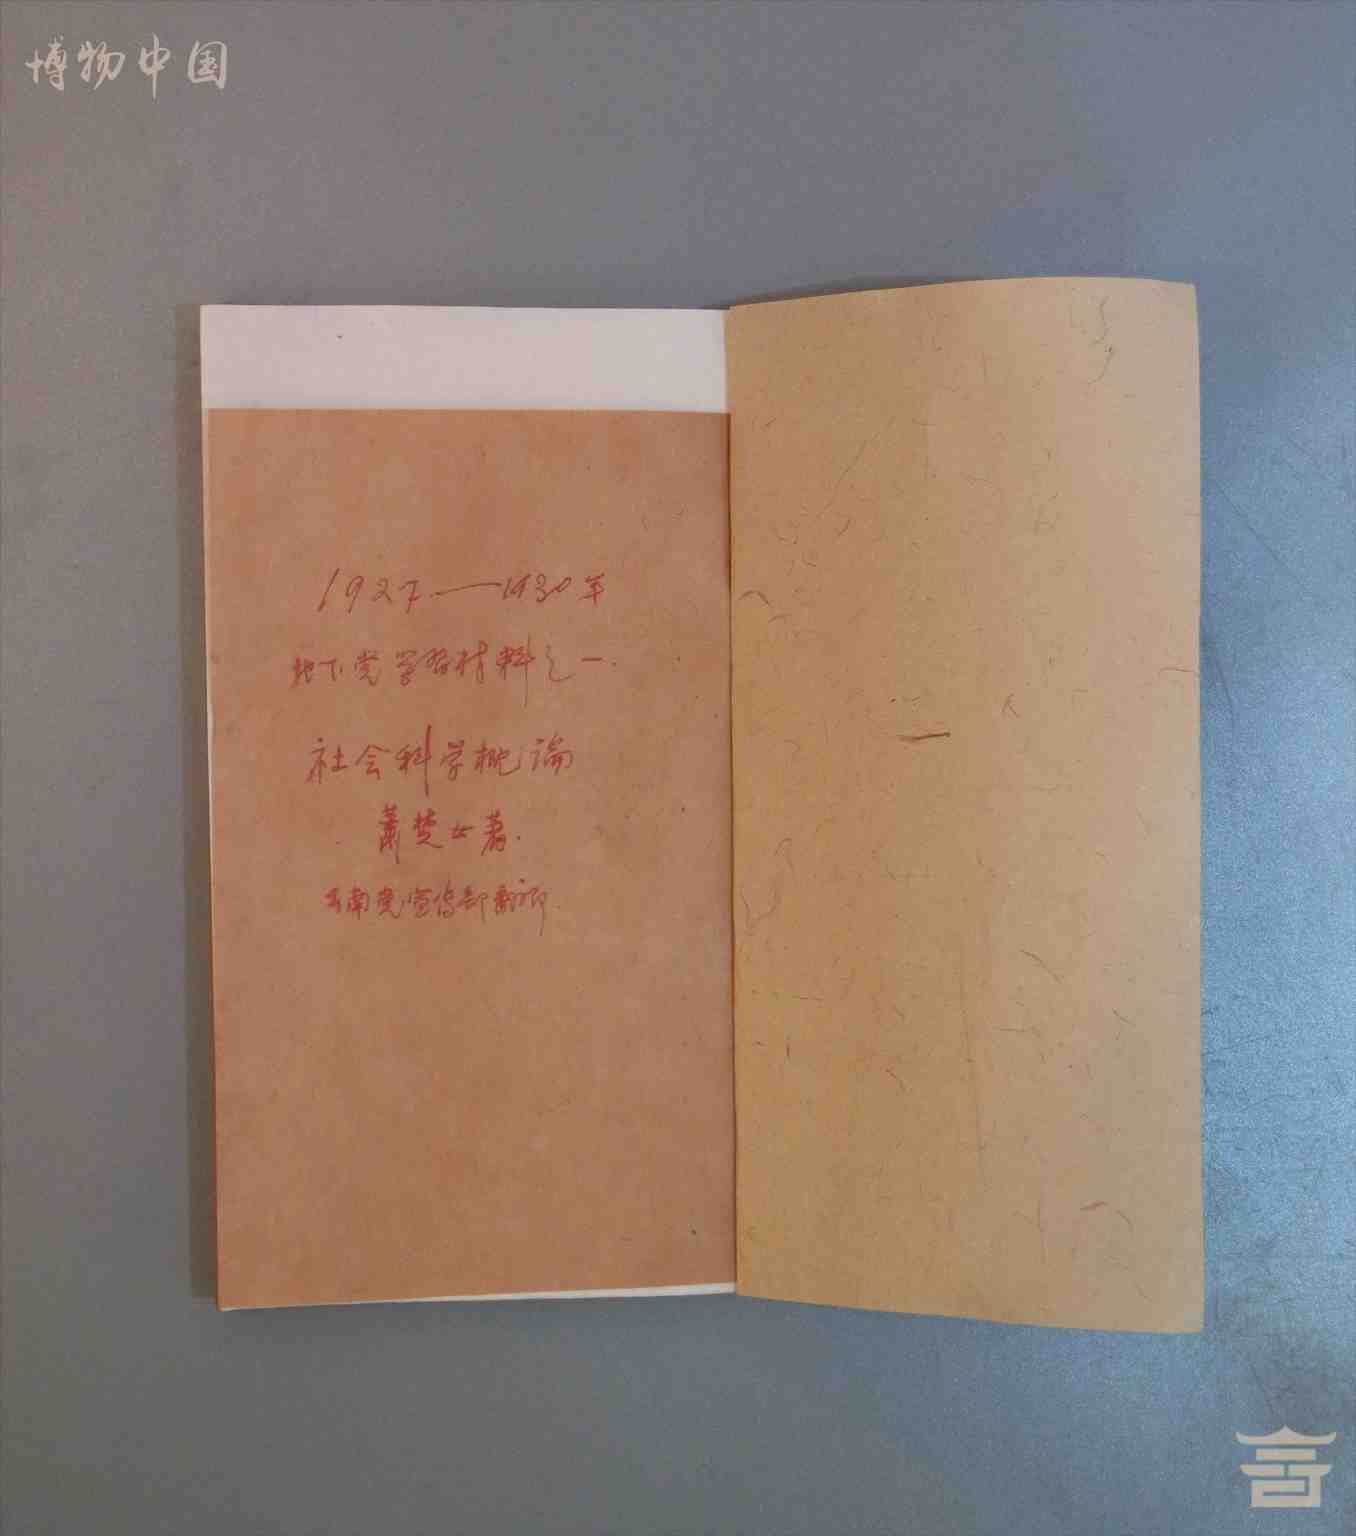 博物中国
1927——1930年
地下党学习材料之一.
社会科学概论
萧楚女著.
云南党宣传部翻印.